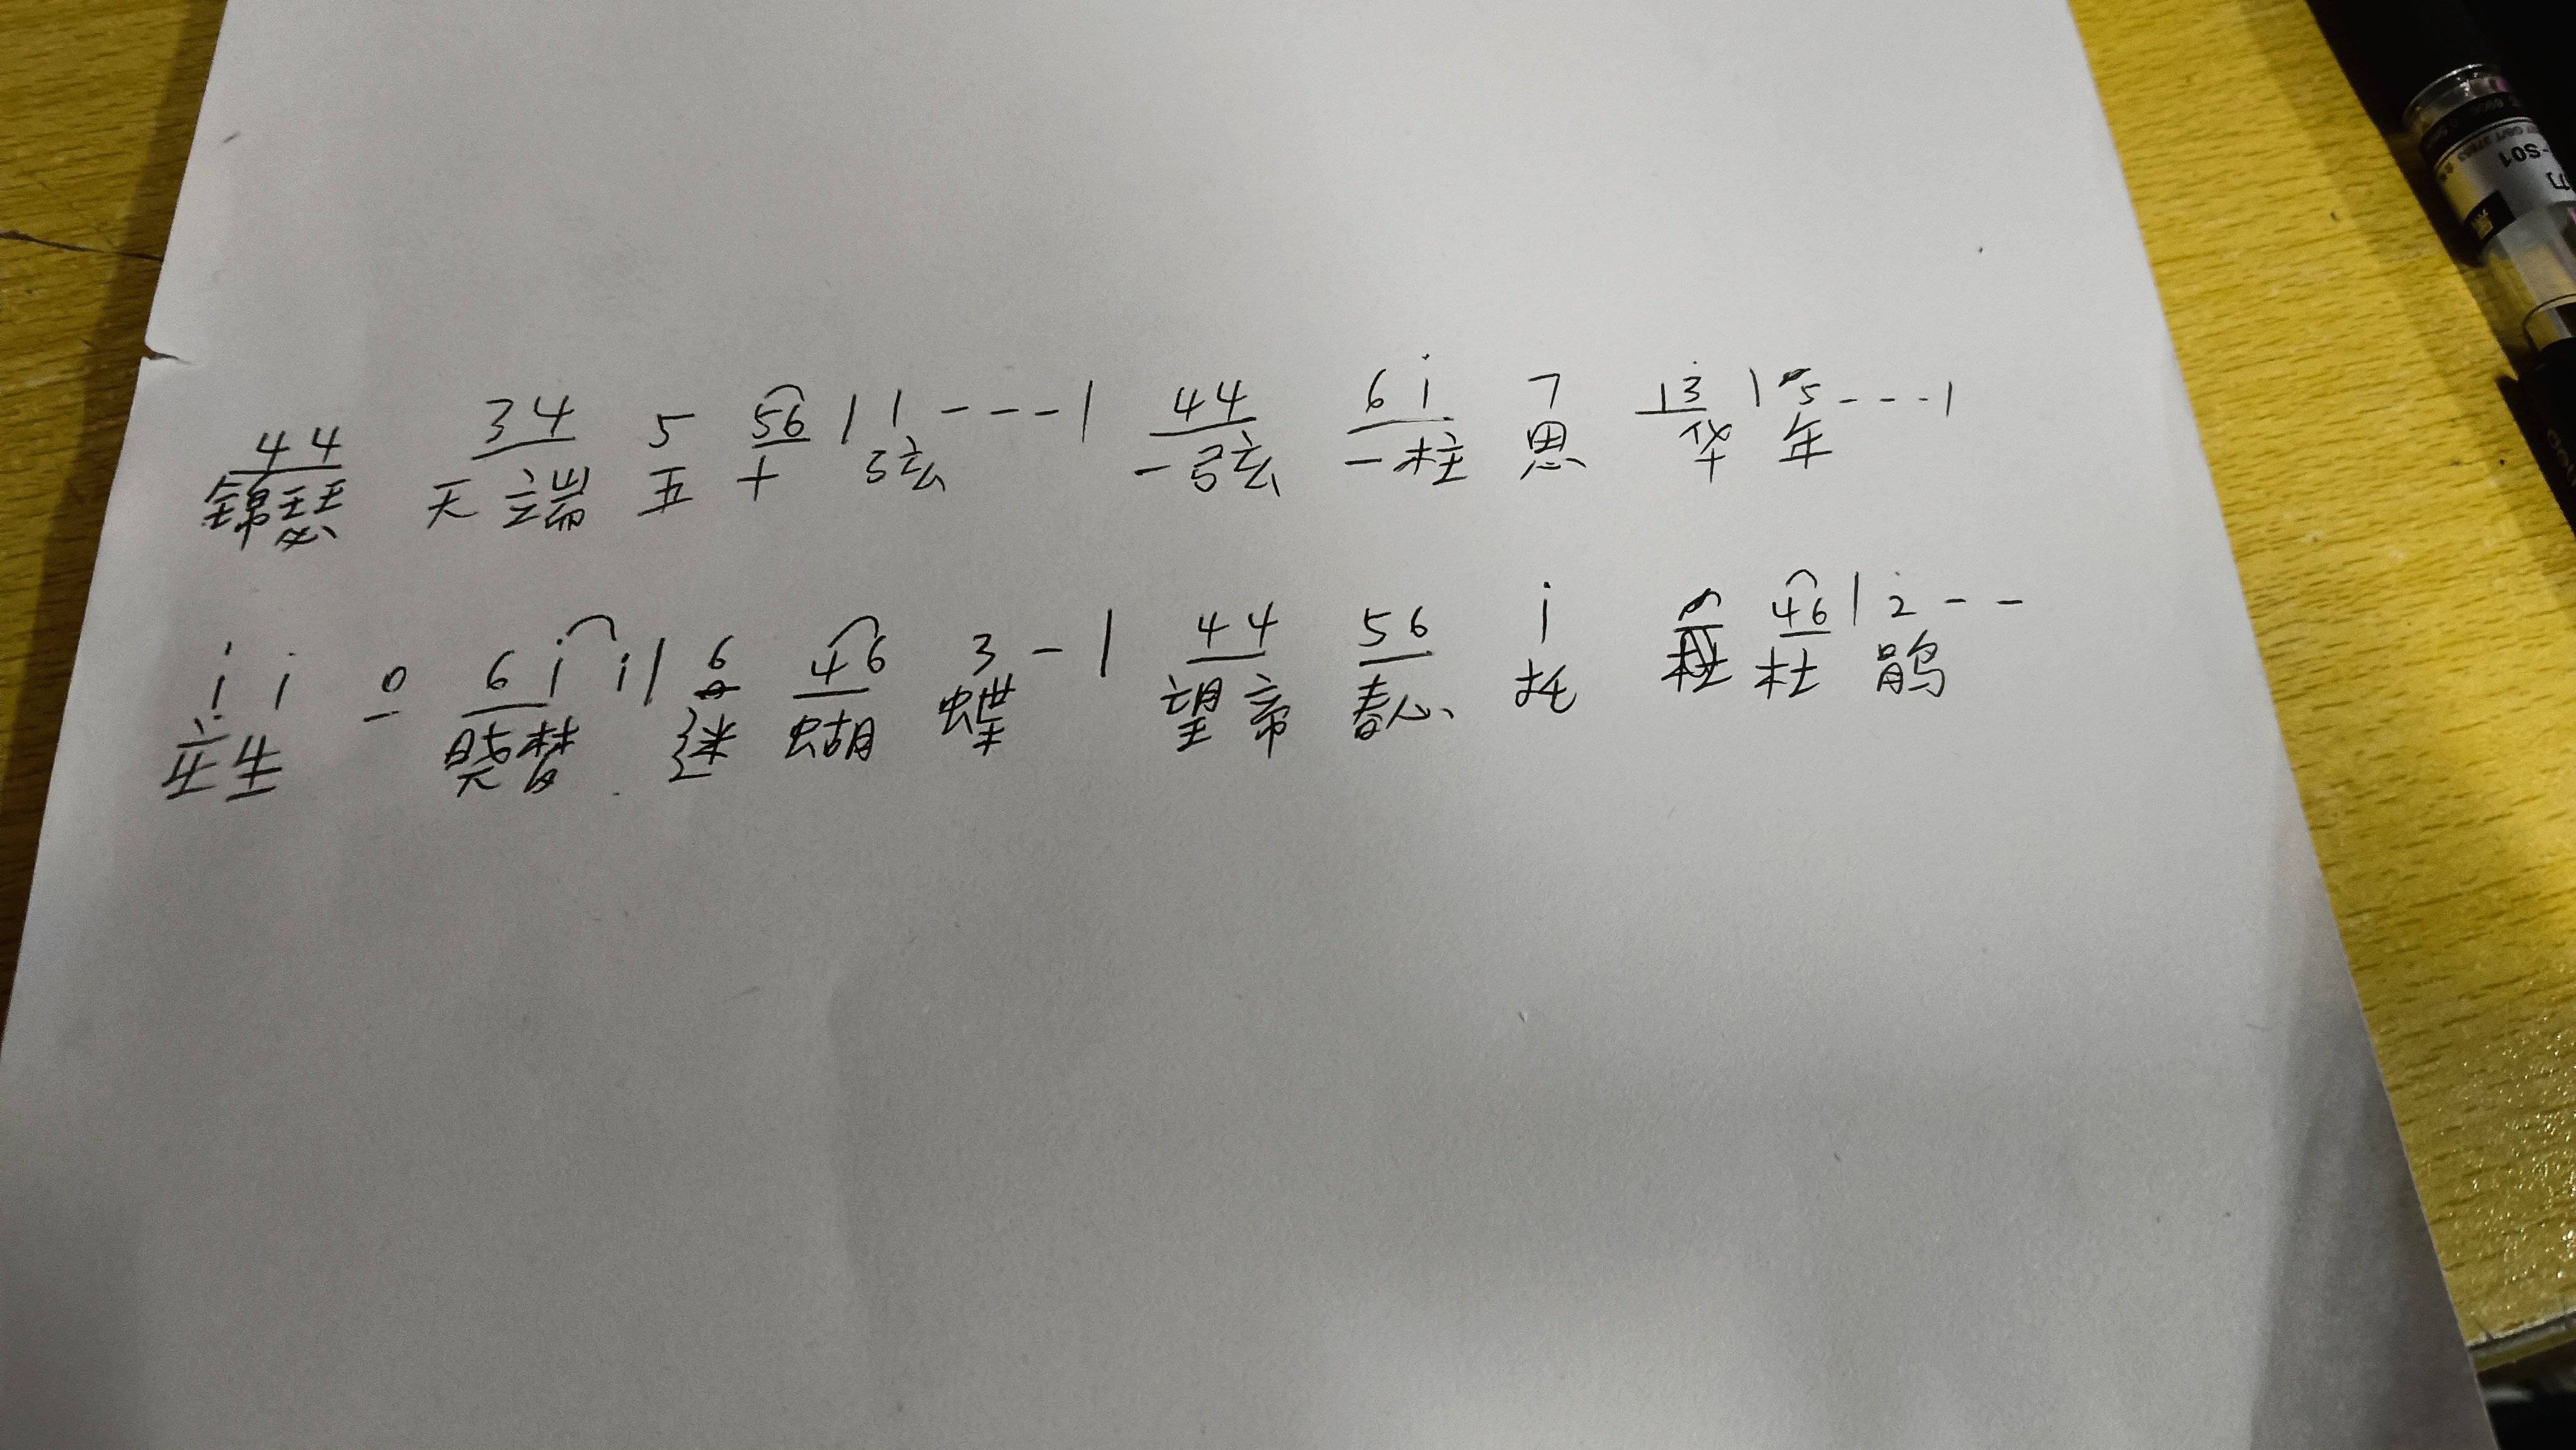 44 34 5 56 | 1 - - - | 44 6i 7 13 | 5 - - - |
锦瑟 天端 五 十 弦 一弦 一柱 思 华 年
i i 0 6 i i | 6 46 3 - | 44 56 i 46 | 2 - -
庄生 晓梦 迷 蝴 蝶 望帝 春心 托 杜 鹃
S01